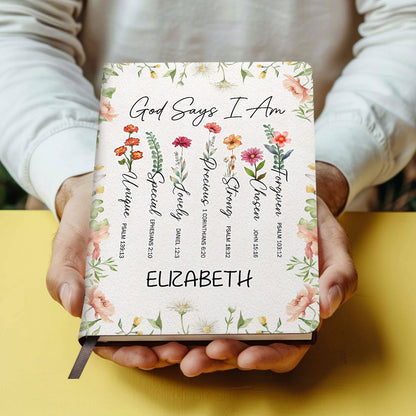 God Says I Am
Unique
PSALM 139:13
Special
EPHESIANS 2:10
Lovely
DANIEL 12:3
Precious
1 CORINTHIANS 6:20
Strong
PSALM 18:32
Chosen
JOHN 15:16
Forgiven
PSALM 103:12
ELIZABETH